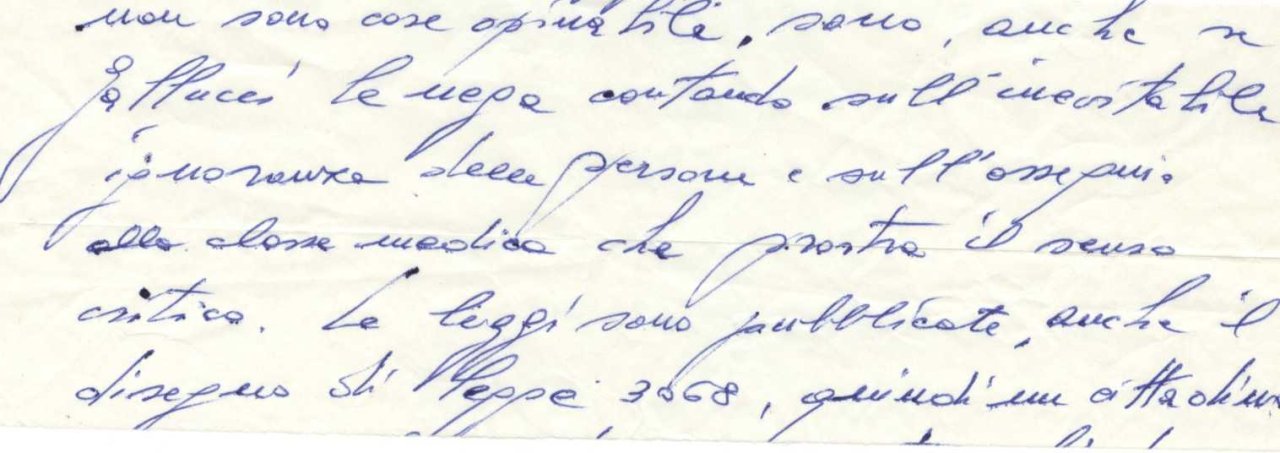 non sono cose opinabili, sono, anche se
Gallucci le nega contando sull'inevitabile
ignoranza delle persone e sull'ossequio
alla classe medica che prostra il senso
critico. Le leggi sono pubblicate, anche il
disegno di legge 3068, quindi un cittadino